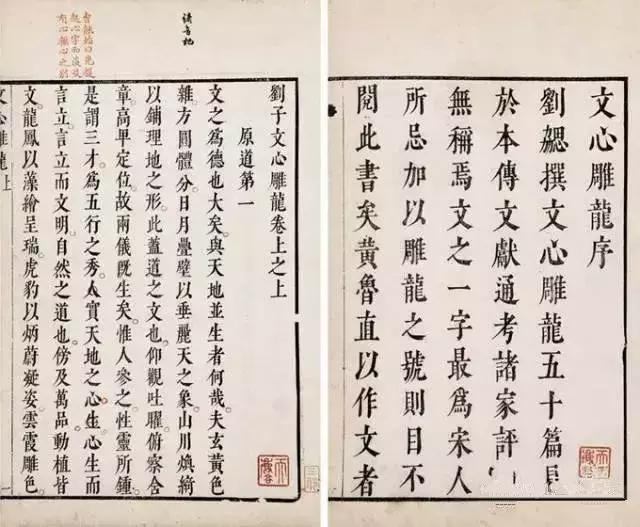 文心雕龍序
劉勰撰文心雕龍五十篇
於本傳文獻通考諸家評
無稱焉文之一字最爲宋人
所忌加以雕龍之號則目不
閱此書矣黃魯直以作文者
劉子文心雕龍卷上之上
原道第一
文之爲德也大矣與天地並生者何哉夫玄黃色
雜方圓體分日月疊璧以垂麗天之象山川煥綺
以鋪理地之形此蓋道之文也仰觀吐曜俯察含
章高卑定位故兩儀旣生矣惟人參之性靈所鍾
是謂三才爲五行之秀人實天地之心生心生而
言立言立而文明自然之道也傍及萬品動植皆
文龍鳳以藻繪呈瑞虎豹以炳蔚凝姿雲霞雕色
曹能始曰先提
起心字而後及
有心無心之別
文心雕龍上